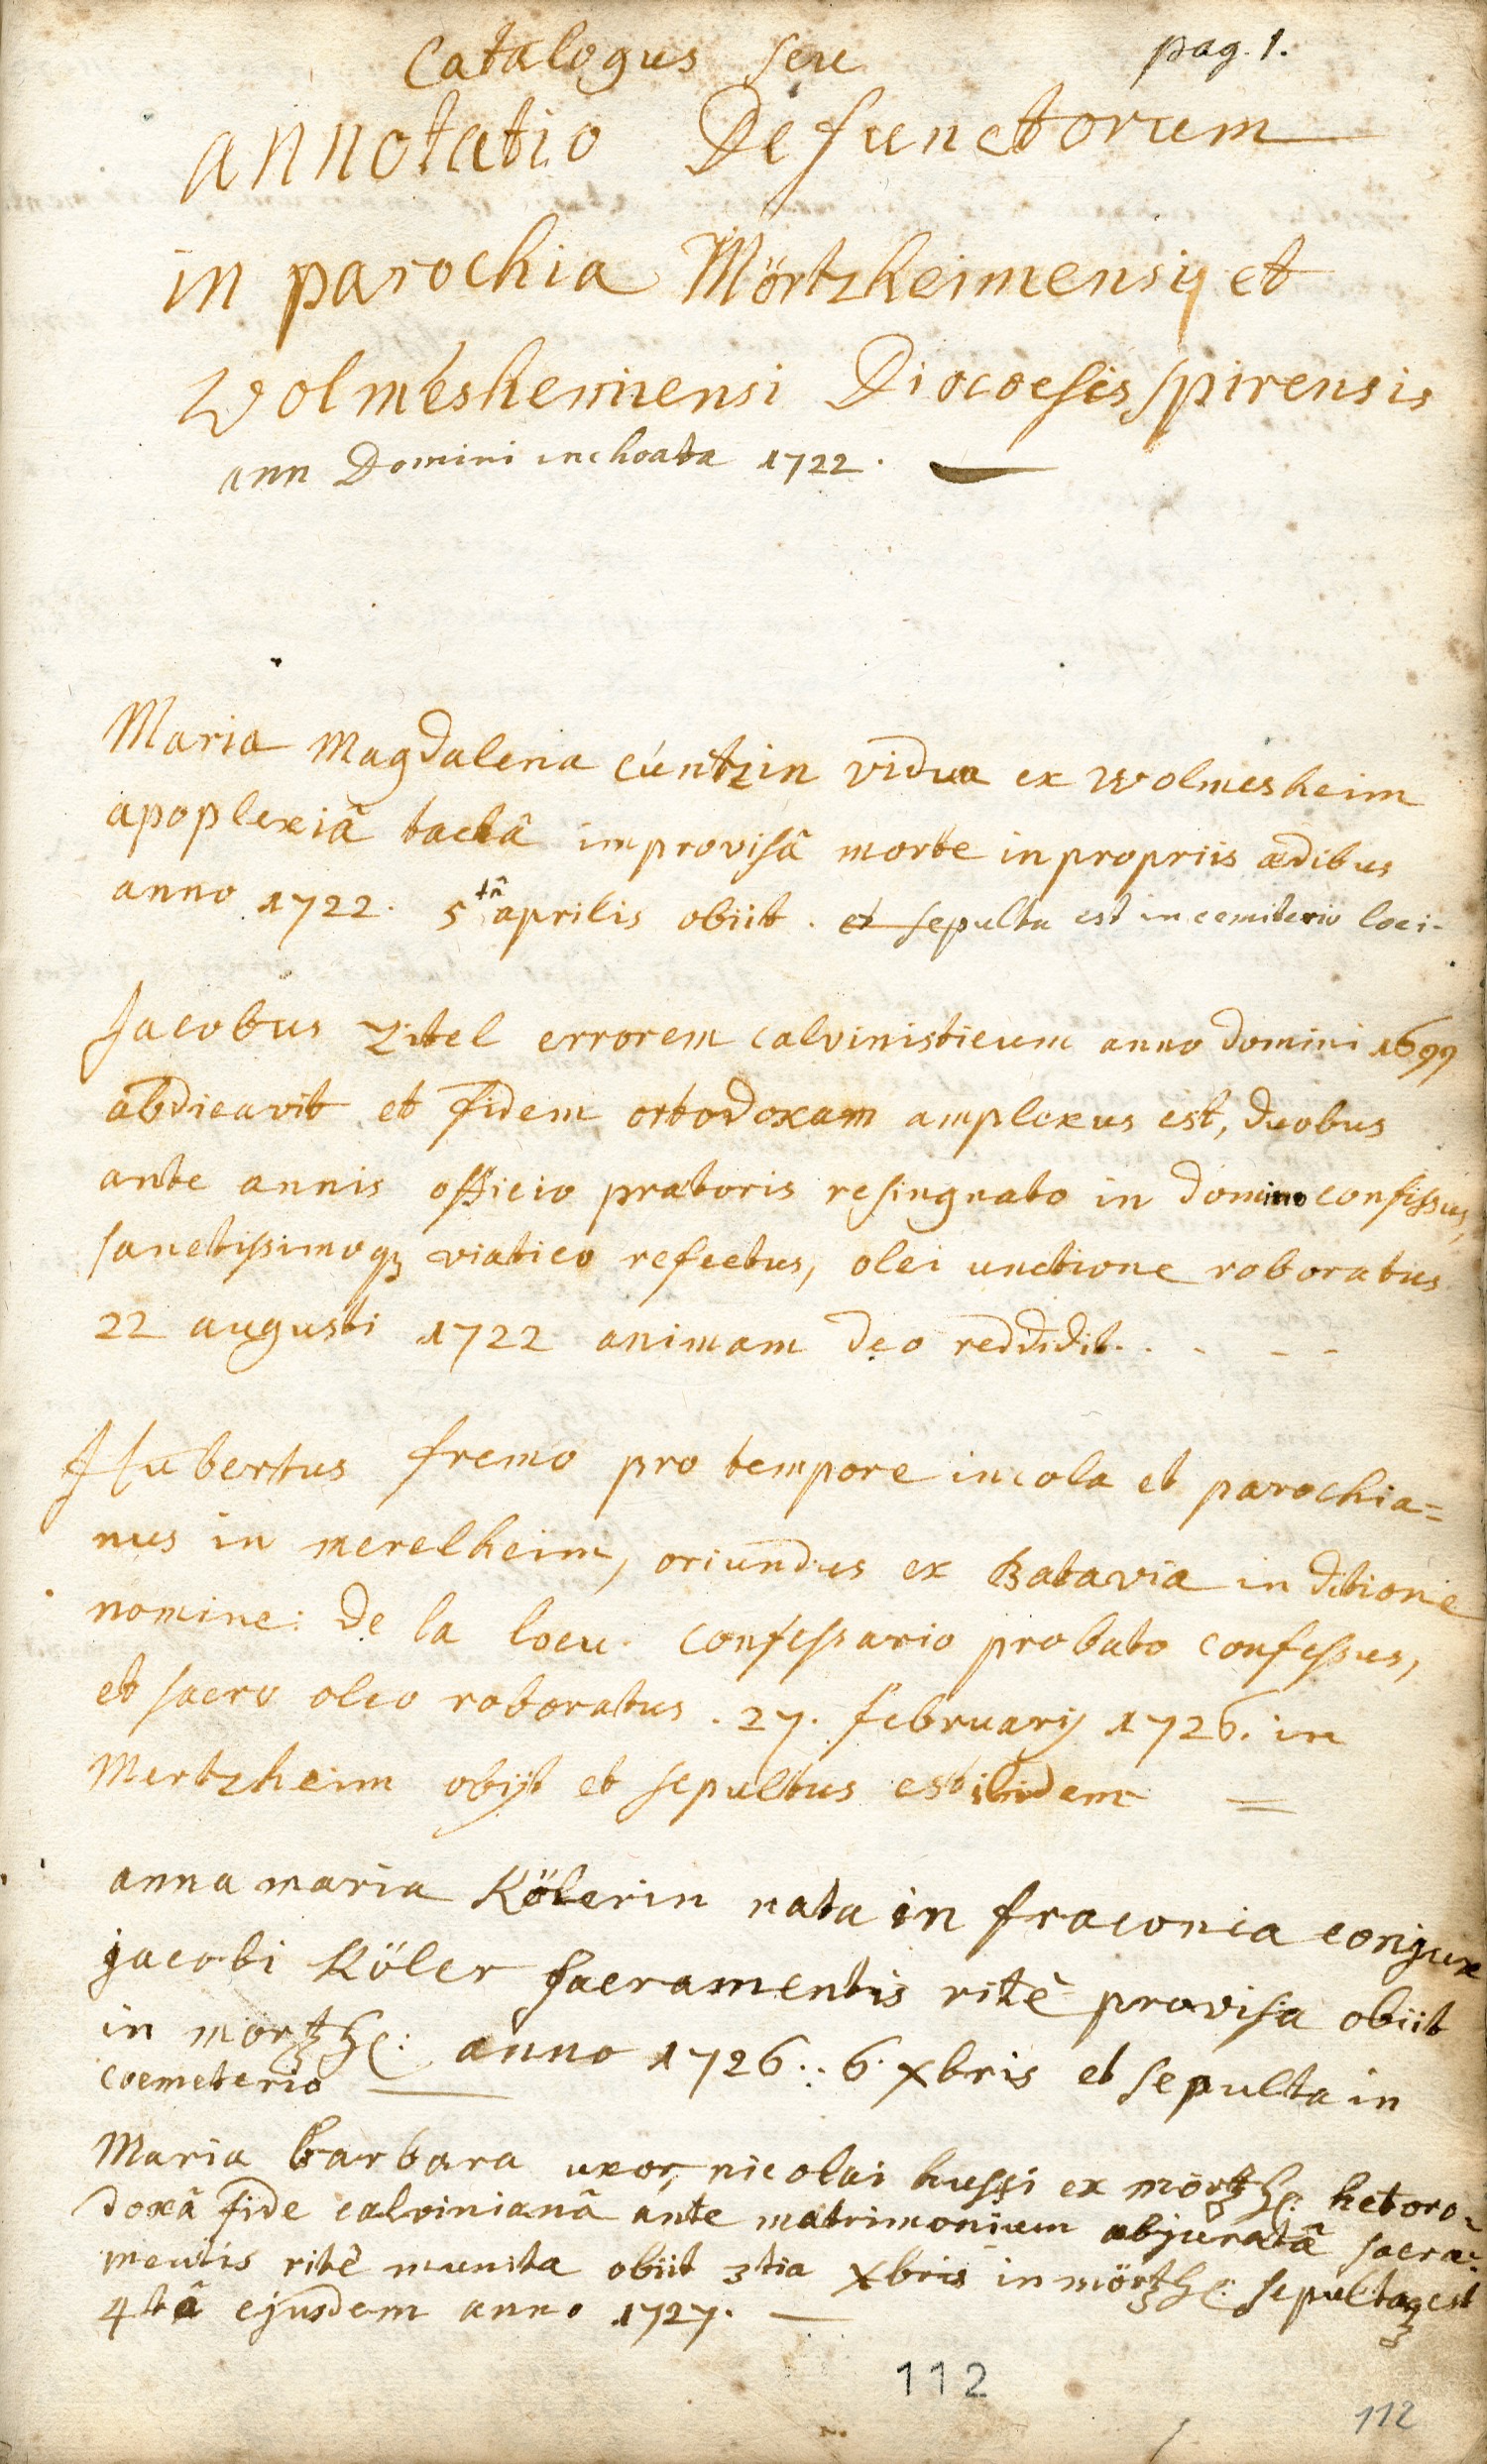 pag. 1.
Catalogus seu
annotatio Defunctorum
in parochia Mörtzheimensij et
Wolmesheimensi Diocoesis spirensis
ann Domini inchoata 1722.
Maria Magdalena Cúntzin vidua ex Wolmesheim
apoplexiâ tactâ improvisâ morte in propriis ædibus
anno 1722. 5tâ aprilis obiit. et sepulta est in cemiterio loci.
Jacobus Zitel errorem calvinisticum anno domini 1699
abdicavit et fidem ortodoxam amplexus est, duobus
ante annis officio prætoris resingnato in domino confissus,
sanctissimoqz viatico refectus, olei unctione roboratus
22 augusti 1722 animam deo reddidit. . - - -
Hubertus fremo pro tempore incola et parochia=
nus in merelheim, oriundus ex Batavia in ditione
nomine: De la loeu. confessario probato confessus,
et sacro oleo roboratus. 27. februarij 1726. in
Mertzheim obijt et sepultus est ibidem =
anna maria Kölerin nata in fraconia conjux
jacobi Köler sacramentis ritè provisa obiit
in mörtzhe: anno 1726.. 6. xbris et sepulta in
coemeterio
Maria barbara uxor, nicolai hussi ex mörtzhe: hetoro=
doxâ fide calvinianâ ante matrimonium abjuratâ sacra=
mentis ritè munita obiit 3tia xbris in mörtzhe: sepultaqz est
4tâ ejusdem anno 1727.
112
112